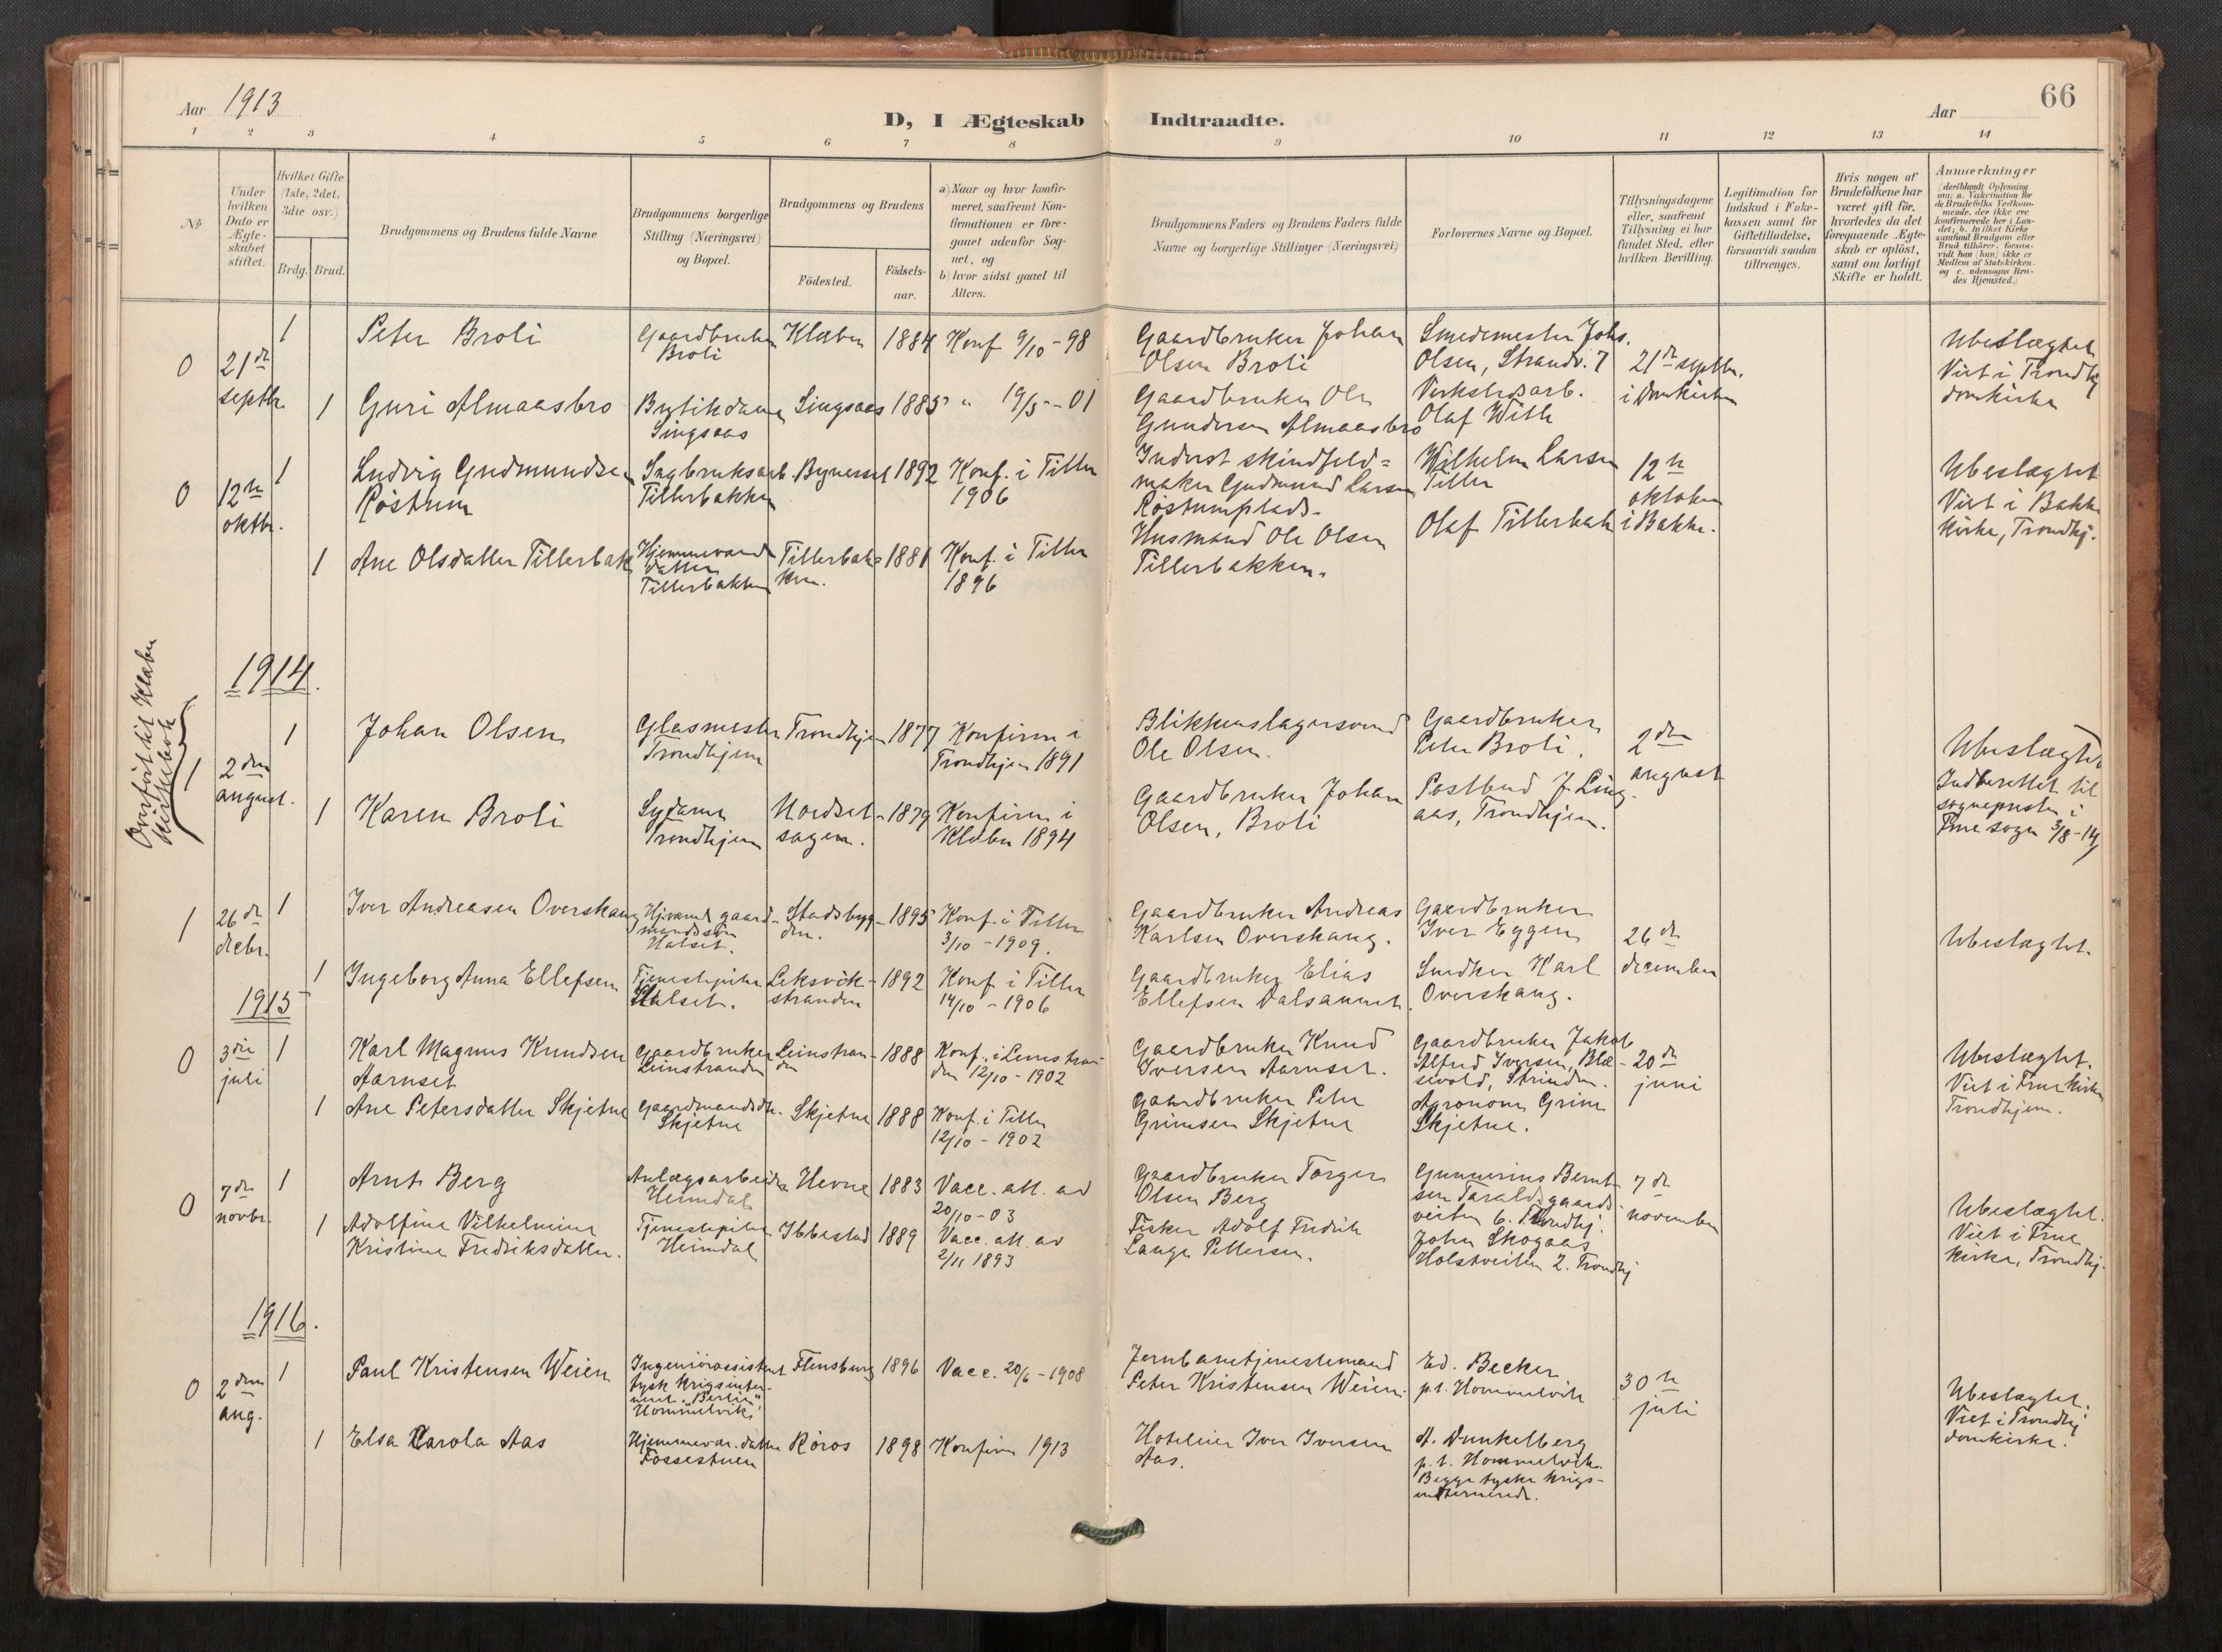 Aar 1913
D, I Ægteskab Indtraadte.
Aar
66
1 2 3 4 5 6 7 8 9 10 11 12 13 14
No
Under hvilken Dato er Ægteskabet stiftet.
Hvilket Gifte (1ste, 2det, 3die osv.)
Brdg. Brud.
Brudgommens og Brudens fulde Navne
Brudgommens borgerlige Stilling (Næringsvei) og Bopæl.
Brudgommens og Brudens
Födested.
Födsels-aar.
a) Naar og hvor konfirmeret, saafremt Konfirmationen er foregaaet udenfor Sognet, og
b) hvor sidst gaaet til Alters.
Brudgommens Faders og Brudens Faders fulde Navne og borgerlige Stillinger (Næringsvei)
Forlovernes Navne og Bopæl.
Tillysningsdagene eller, saafremt Tillysning ei har fundet Sted, efter hvilken Bevilling.
Legitimation for Indskud i Enkekassen samt for Giftetilladelse, forsaavidt saadan tiltrænges.
Hvis nogen af Brudefolkene har været gift før, hvorledes da det foregaaende Ægteskab er oplöst, samt om lovligt Skifte er holdt.
Anmærkninger
(deriblandt Oplysning om: a. Vakcination for de Brudefolks Vedkommende, der ikke ere konfirmerede her i Landet; b. hvilket Kirkesamfund Brudgom eller Brud tilhörer, forsaavidt han (hun) ikke er Medlem af Statskirken, og c. udensogns Brudes Hjemsted.)
0
21de
septbr.
1
Peter Broli
Gaardbruker
Broli
Klæbu
1884
Konf 9/10 - 98
Gaardbruker Johan
Olsen Broli
Smedemester Johs.
Olsen, Strandv. 7
21de septbr.
i Domkirken
Ubeslægtet
Viet i Trondhj
domkirke
1
Guri Almaasbro
Butikdame
Singsaas
Singsaas
1885
" 19/5 - 01
Gaardbruker Ole
Gundersen Almaasbro
Verkstedsarb.
Olaf With
0
12te
oktbr.
1
Ludvig Gudmundsen
Röstum
Sagbruksarb.
Tillerbakken
Bynesset
1892
Konf. i Tiller
1906
Inderst skindfeld=
maker Gudmund Larsen
Röstumplads.
Wilhelm Larsen
Tiller
12te
oktober
i Bakke.
Ubeslægtet
Viet i Bakke
kirke, Trondhj.
1
Ane Olsdatter Tillerbak
Hjemmevær.
datter
Tillerbakken
Tillerbak=
ken.
1881
Konf. i Tiller
1896
Husmand Ole Olsen
Tillerbakken.
Olaf Tillerbak
1914.
Overført til Klæbu
kirkebok
1
2den
august.
1
Johan Olsen
Glasmester
Trondhjem
Trondhjem
1877
Konfirm i
Trondhjem 1891
Blikkenslagersvend
Ole Olsen.
Gaardbruker
Peter Broli.
2den
august
Ubeslægtet
Indberettet til
sogneprsten i
Frue sogn 3/8-14
1
Karen Broli
Sydame
Trondhjem
Nordset-
sagen.
1879
Konfirm i
Klæbu 1894
Gaardbruker Johan
Olsen, Broli
Postbud J. Ling-
aas, Trondhjem.
1
26de
decbr.
1
Iver Andreasen Overskaug
Hjværende gaard-
mandssön
Halset.
Stadsbyg-
den.
1895
Konf. i Tiller
3/10 - 1909.
Gaardbruker Andreas
Karlsen Overskaug.
Gaardbruker
Iver Eggen
26de
december
Ubeslægtet.
1
Ingeborg Anna Ellefsen
Tjenestepike
Halset.
Leksvik-
stranden
1892
Konf i Tiller
14/10 - 1906
Gaardbruker Elias
Ellefsen Dalsaunet.
Snedker Karl
Overskaug.
1915
0
3die
juli
1
Karl Magnus Knudsen
Aarnset
Gaardbruker
Leinstranden
Leinstran-
den
1888
Konf. i Leinstran-
den 12/10 - 1902
Gaardbruker Knud
Iversen Aarnset.
Gaardbruker Jakob
Alfred Iversen, Blæ-
sevold, Strinden.
20de
juni
Ubeslægtet.
Viet i Frue kirke
Trondhjem.
1
Ane Petersdatter Skjetne
Gaardmandsdtr.
Skjetne
Skjetne
1888
Konf. i Tiller
12/10 - 1902
Gaardbruker Peter
Grimsen Skjetne
Agronom Grim
Skjetne.
0
7de
novbr.
1
Arnt Berg
Anlægsarbeider
Heimdal
Hevne
1883
Vacc. att. av
20/10 - 03
Gaardbruker Torger
Olsen Berg
Gunnerius Bernt-
sen Taraldsgaards-
veiten 6. Trondhj.
7de
november
Ubeslægtet.
Viet i Frue
kirke, Trondhj.
1
Adolfine Vilhelmine
Kristine Fredriksdatter.
Tjenestepike
Heimdal
Ibbestad
1889
Vacc. att. av
2/11 1893
Fisker Adolf Fredrik
Lange Pettersen.
John Skogaas
Holstveiten 2. Trondhj
1916.
0
2den
aug.
1
Paul Kristensen Weien
Ingeniörassistent
tysk krigsinter-
nert. "Berlin"
Hommelvik
Flensburg
1896
Vacc. 20/6 - 1908
Jernbanetjenestemand
Peter Kristensen Weien.
Ed. Becker
p.t. Hommelvik
30te
juli
Ubeslægtet.
Viet i Trondhj
domkirke.
1
Elsa Carola Aas
Hjemmevær. datter
Fossestuen
Röros
1898
Konfirm 1913
Hoteleier Iver Iversen
Aas.
A. Dunkelberg
p.t. Hommelvik.
Begge tyske krigs-
internerede.